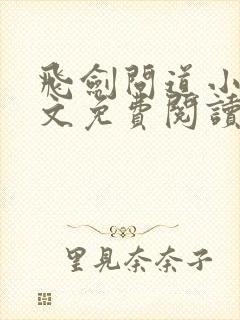 飛劍問道小
文免費閱讀
里見奈奈子